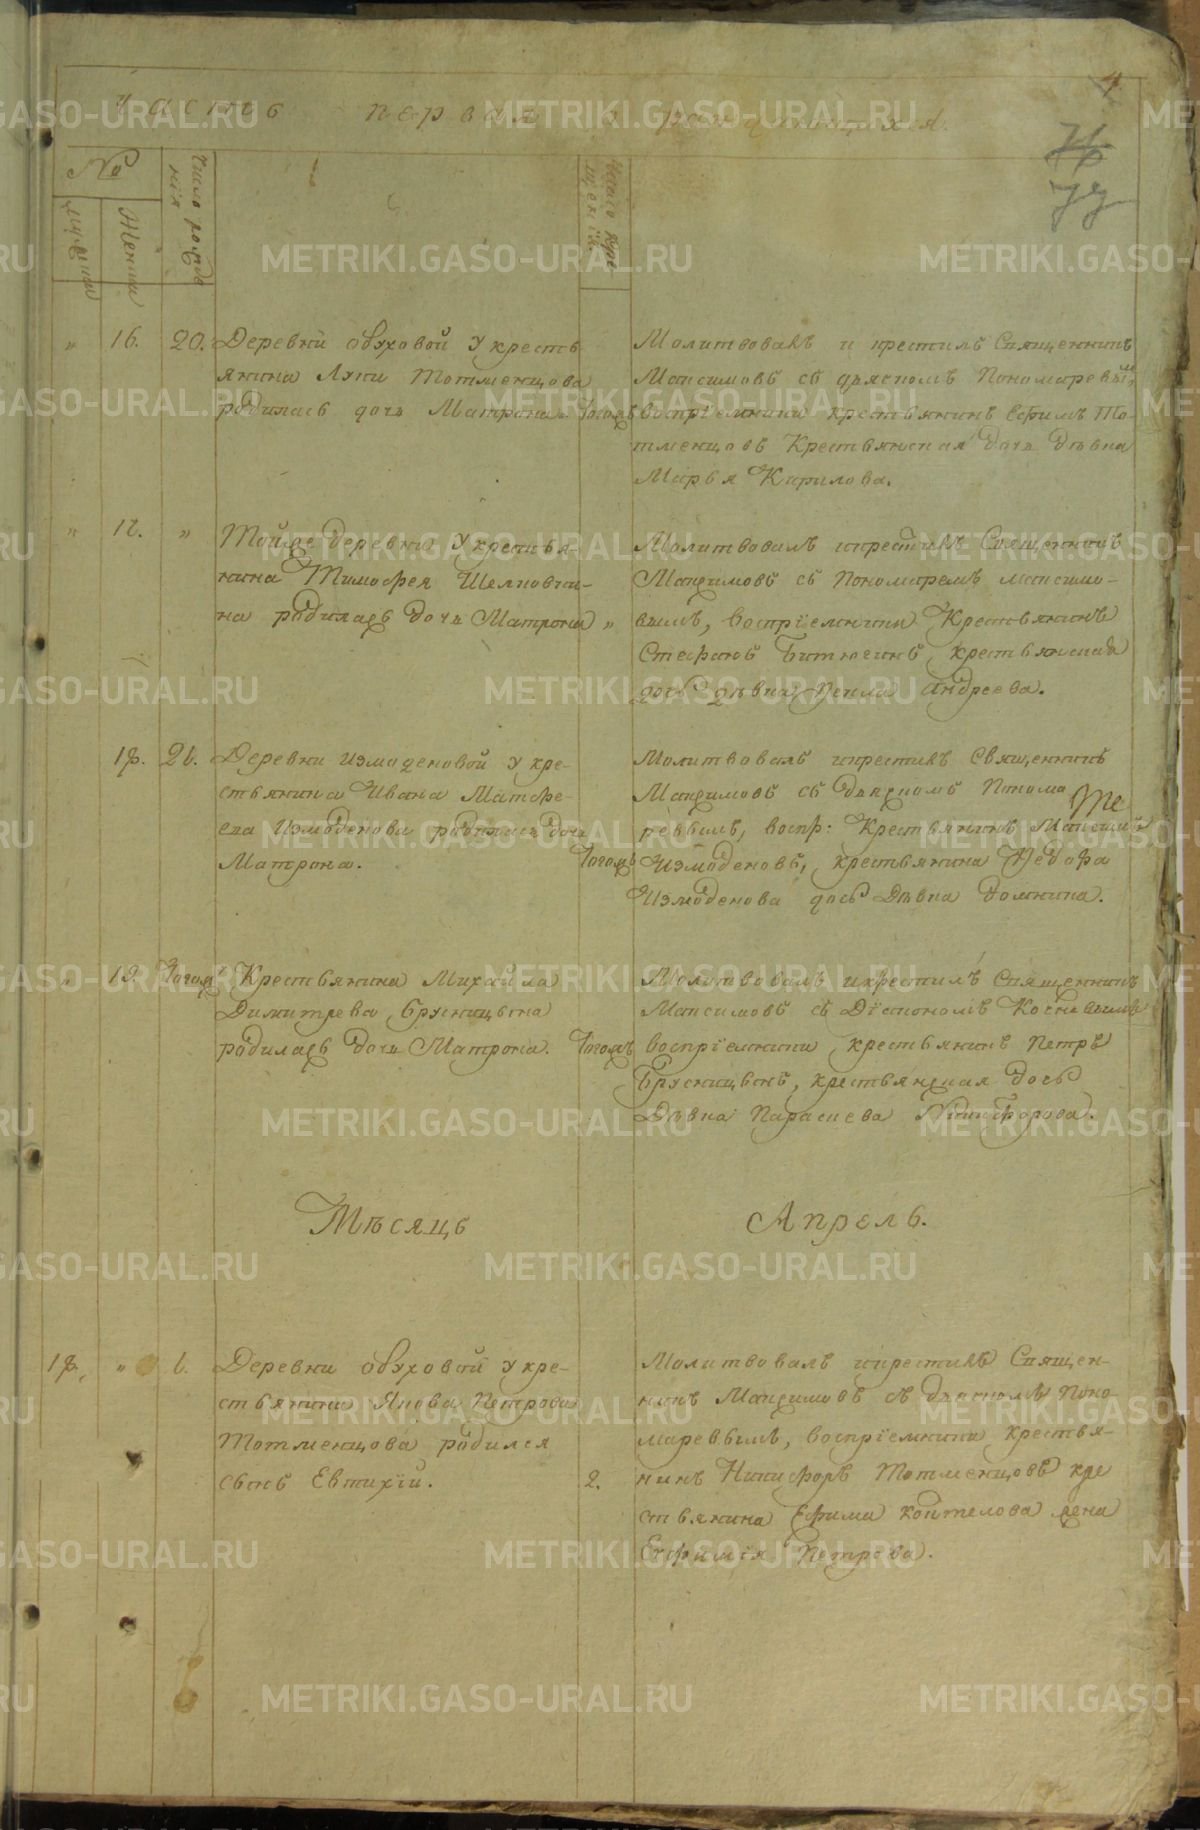 Часть первая о раждающихся.
4
77
№
Число рожде
нія
Число кре
щенія
Мужеска
Женска
" 16. 20. Деревни обуховой у кресть
янина Луки Тотменцова
родилась дочь Матрона. Тогожъ
Молитвовалъ и крестилъ Священникъ
Максимовъ съ дьякономъ Пономаревымъ
воспріемники крестьянинъ Ефимъ То-
тменцовъ Крестьянская дочь дѣвка
Марья Карилова.
" 17. " Тойже деревни у крестья-
нина Тимофея Шелковки-
на родилась дочь Матрона "
Молитвовалъ икрестилъ Священникъ
Максимовъ съ Пономаремъ максимо-
вымъ, воспріемники Крестьянинъ
Стефанъ Битюгинъ, крестьянская
дочь дѣвка Фекла Андреева.
18. 21. Деревни измоденовой у кре-
стьянина Ивана Матфе-
ева Измоденова родилась дочь
Матрона. Тогожъ
Молитвовалъ икрестилъ Священникъ
Максимовъ съ дьякономъ Понома
ревымъ, воспр: Крестьянинъ Максимъ
Измоденовъ, крестьянина Федора
Измоденова дочь Дѣвка Домника.
" 19. Тогожъ Крестьянина Михайла
Димитрева Брусницына
родилась дочь Матрона. Тогожъ
Молитвовалъ икрестилъ Священникъ
Максимовъ съ Діякономъ
воспріемники крестьянинъ Петръ
Брусницынъ, крестьянская дочь
Дѣвка Параскева Никифорова.
Мѣсяцъ Апрель.
18. " 1. Деревни обуховой у кре-
стьянина Якова Петрова
Тотменцова родился
сынъ Евтихій. 2.
Молитвовалъ икрестилъ Священ-
никъ Максимовъ съ дьякономъ Поно-
маревымъ, воспріемники крестья-
нинъ Никифоръ Тотменцовъ кре
стьянина Ефима Коптелова жена
Евфимія Петрова.
METRIKI.GASO-URAL.RU